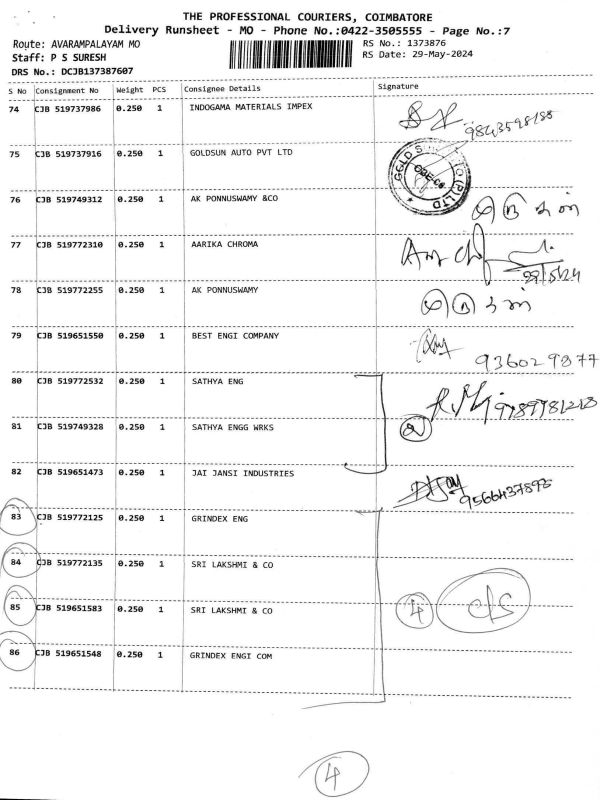 THE PROFESSIONAL COURIERS, COIMBATORE
Delivery Runsheet - MO - Phone No.:0422-3505555 - Page No.:7
Route: AVARAMPALAYAM MO
RS No.: 1373876
Staff: P S SURESH
RS Date: 29-May-2024
DRS No.: DCJB137387607
S No Consignment No Weight PCS Consignee Details Signature
74 CJB 519737986 0.250 1 INDOGAMA MATERIALS IMPEX
9843598188
75 CJB 519737916 0.250 1 GOLDSUN AUTO PVT LTD
76 CJB 519749312 0.250 1 AK PONNUSWAMY &CO
77 CJB 519772310 0.250 1 AARIKA CHROMA
29/5/24
78 CJB 519772255 0.250 1 AK PONNUSWAMY
79 CJB 519651550 0.250 1 BEST ENGI COMPANY
936029877
80 CJB 519772532 0.250 1 SATHYA ENG
81 CJB 519749328 0.250 1 SATHYA ENGG WRKS
82 CJB 519651473 0.250 1 JAI JANSI INDUSTRIES
9566437893
83 CJB 519772125 0.250 1 GRINDEX ENG
84 CJB 519772135 0.250 1 SRI LAKSHMI & CO
85 CJB 519651583 0.250 1 SRI LAKSHMI & CO 4
86 CJB 519651548 0.250 1 GRINDEX ENGI COM
4